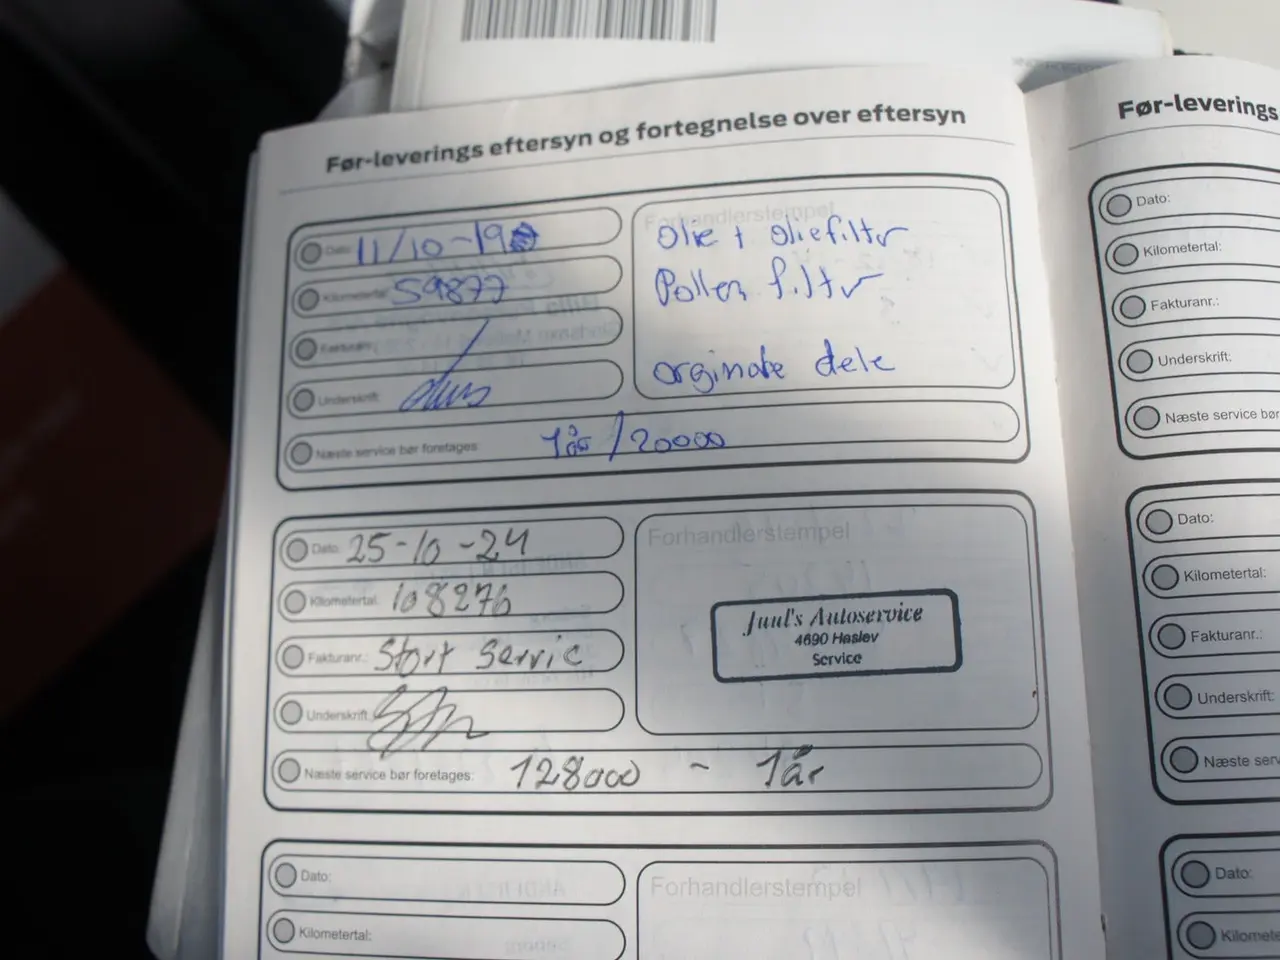 Før-leverings eftersyn og fortegnelse over eftersyn
Dato: 11/10-19
Kilometertal: 59877
Fakturanr.:
Underskrift:
Næste service bør foretages: 1 år / 20000
Forhandlerstempel
Olie + oliefiltr
Pollen filtr
orginale dele
Dato: 25-10-24
Kilometertal: 108276
Fakturanr.: Stort Servic
Underskrift:
Næste service bør foretages: 128000 - 1år
Forhandlerstempel
Juul's Autoservice
4690 Haslev
Service
Dato:
Kilometertal:
Forhandlerstempel
Før-leverings
Dato:
Kilometertal:
Fakturanr.:
Underskrift:
Næste service bør
Dato:
Kilometertal:
Fakturanr.:
Underskrift:
Næste serv
Dato:
Kilomete